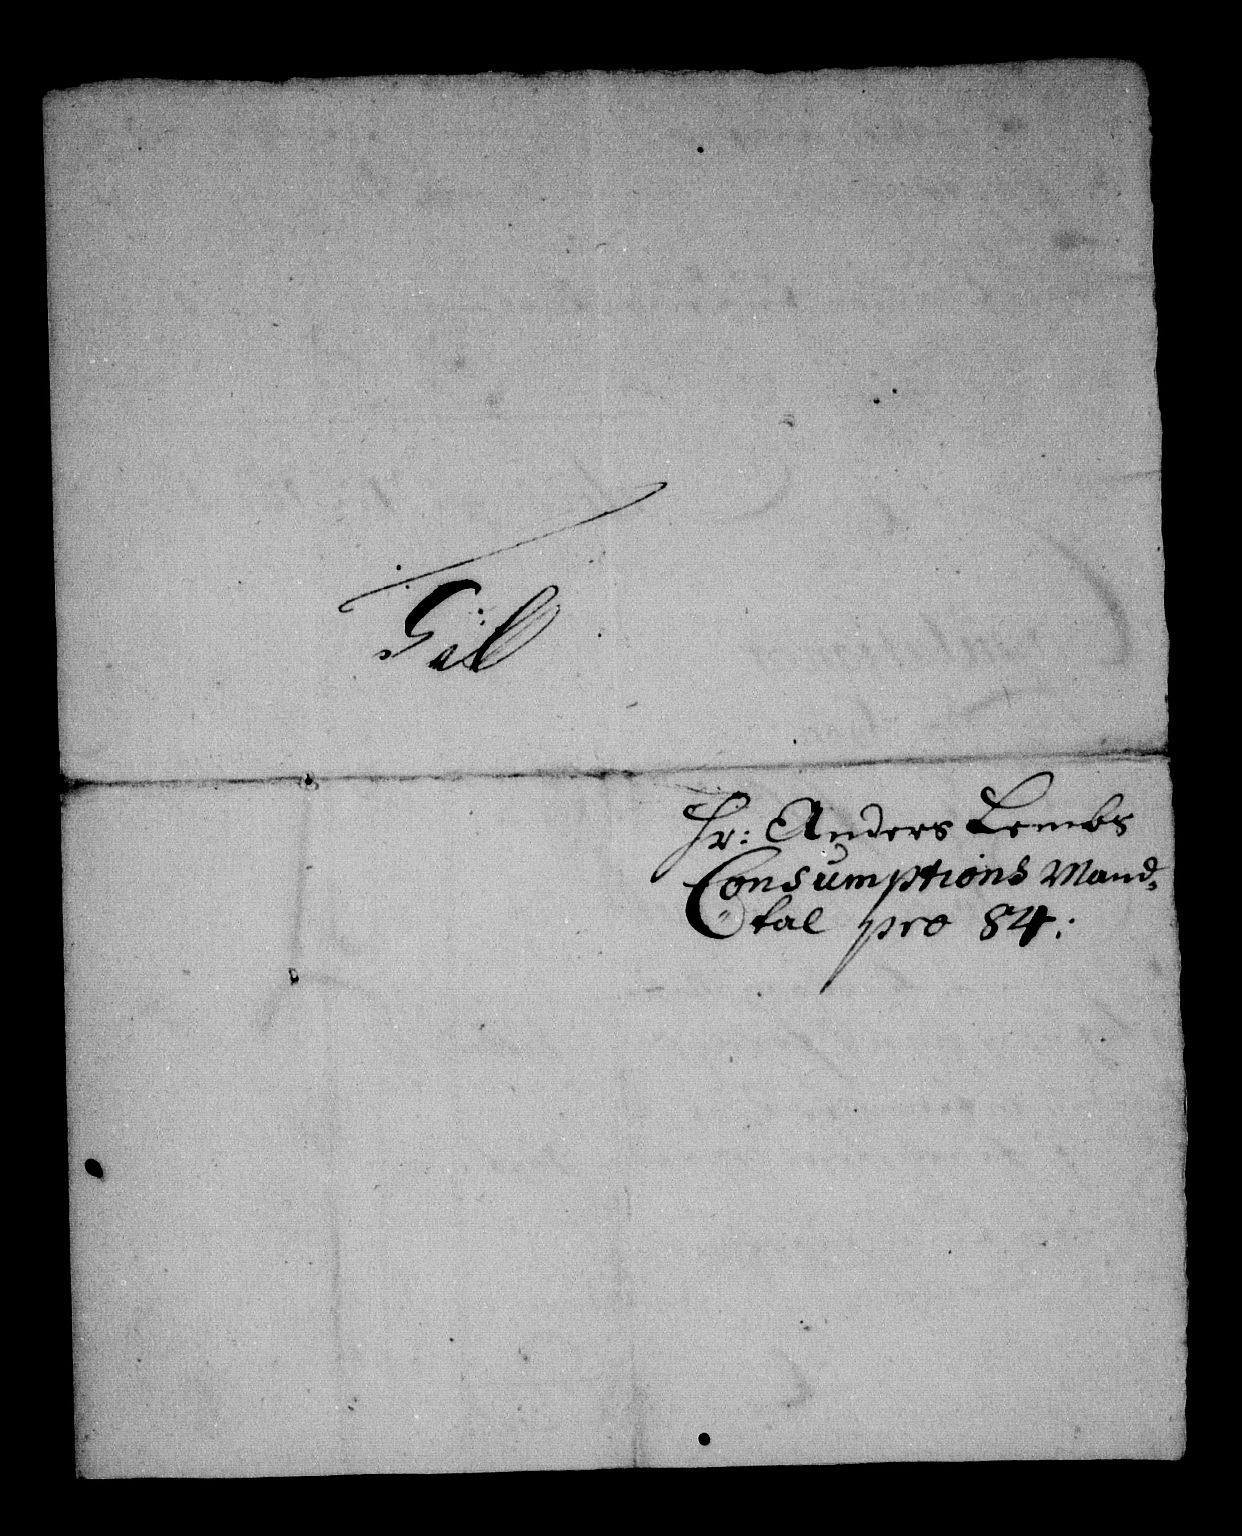 Til
Hr: Anders Lembs
Consumptions Mand-
tal pro 84: